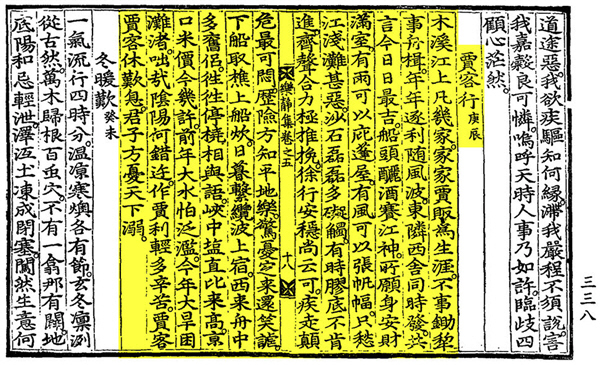 道途惡我欲疾驅知何緣滯我嚴程不須說言
我嘉穀良可憐嗚呼天時人事乃如許臨歧四
顧心茫然
賈客行 庚辰
木溪江上凡幾家家家賈販爲生涯不事鋤犁
事舟楫年年逐利隨風波東隣西舍同時發共
言今日日最吉船頭釃酒賽江神所願身安財
滿室有雨可以庇蓬屋有風可以張帆幅只愁
江淺灘甚惡沙石磊磊多礙觸有時膠底不肯
進齊聲合力極推挽徐行安穩尚云可疾走顛
樂靜集卷之五 十八
危最可悶歷險方知平地樂驚憂之來還笑謔
下船取樵上船炊日暮繫纜波上宿西來舟中
多舊侶往往停橈相與語峽中塩直比來高京
口米價今幾許前年大水怕泛濫今年大旱困
灘渚咄哉陰陽何錯迕作賈利輕多辛苦賈客
賈客休歎息君子方憂天下溺
冬暖歎 癸未
一氣流行四時分温凉寒燠各有節玄冬凜冽
從古然萬木歸根百虫穴不有一翕那有闢地
底陽和忌輕泄澤冱土凍成閉塞闖然生意何
三三八